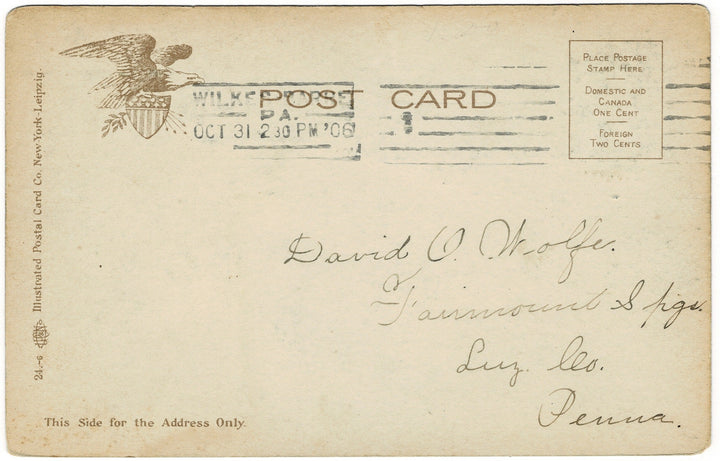 POST CARD
WILKES-BARRE
PA.
OCT 31 2 30 PM '06
1
PLACE POSTAGE
STAMP HERE
DOMESTIC AND
CANADA
ONE CENT
FOREIGN
TWO CENTS
David O. Wolfe.
Fairmount Spgs.
Luz. Co.
Penna.
24.-6
Illustrated Postal Card Co. New York-Leipzig.
This Side for the Address Only.